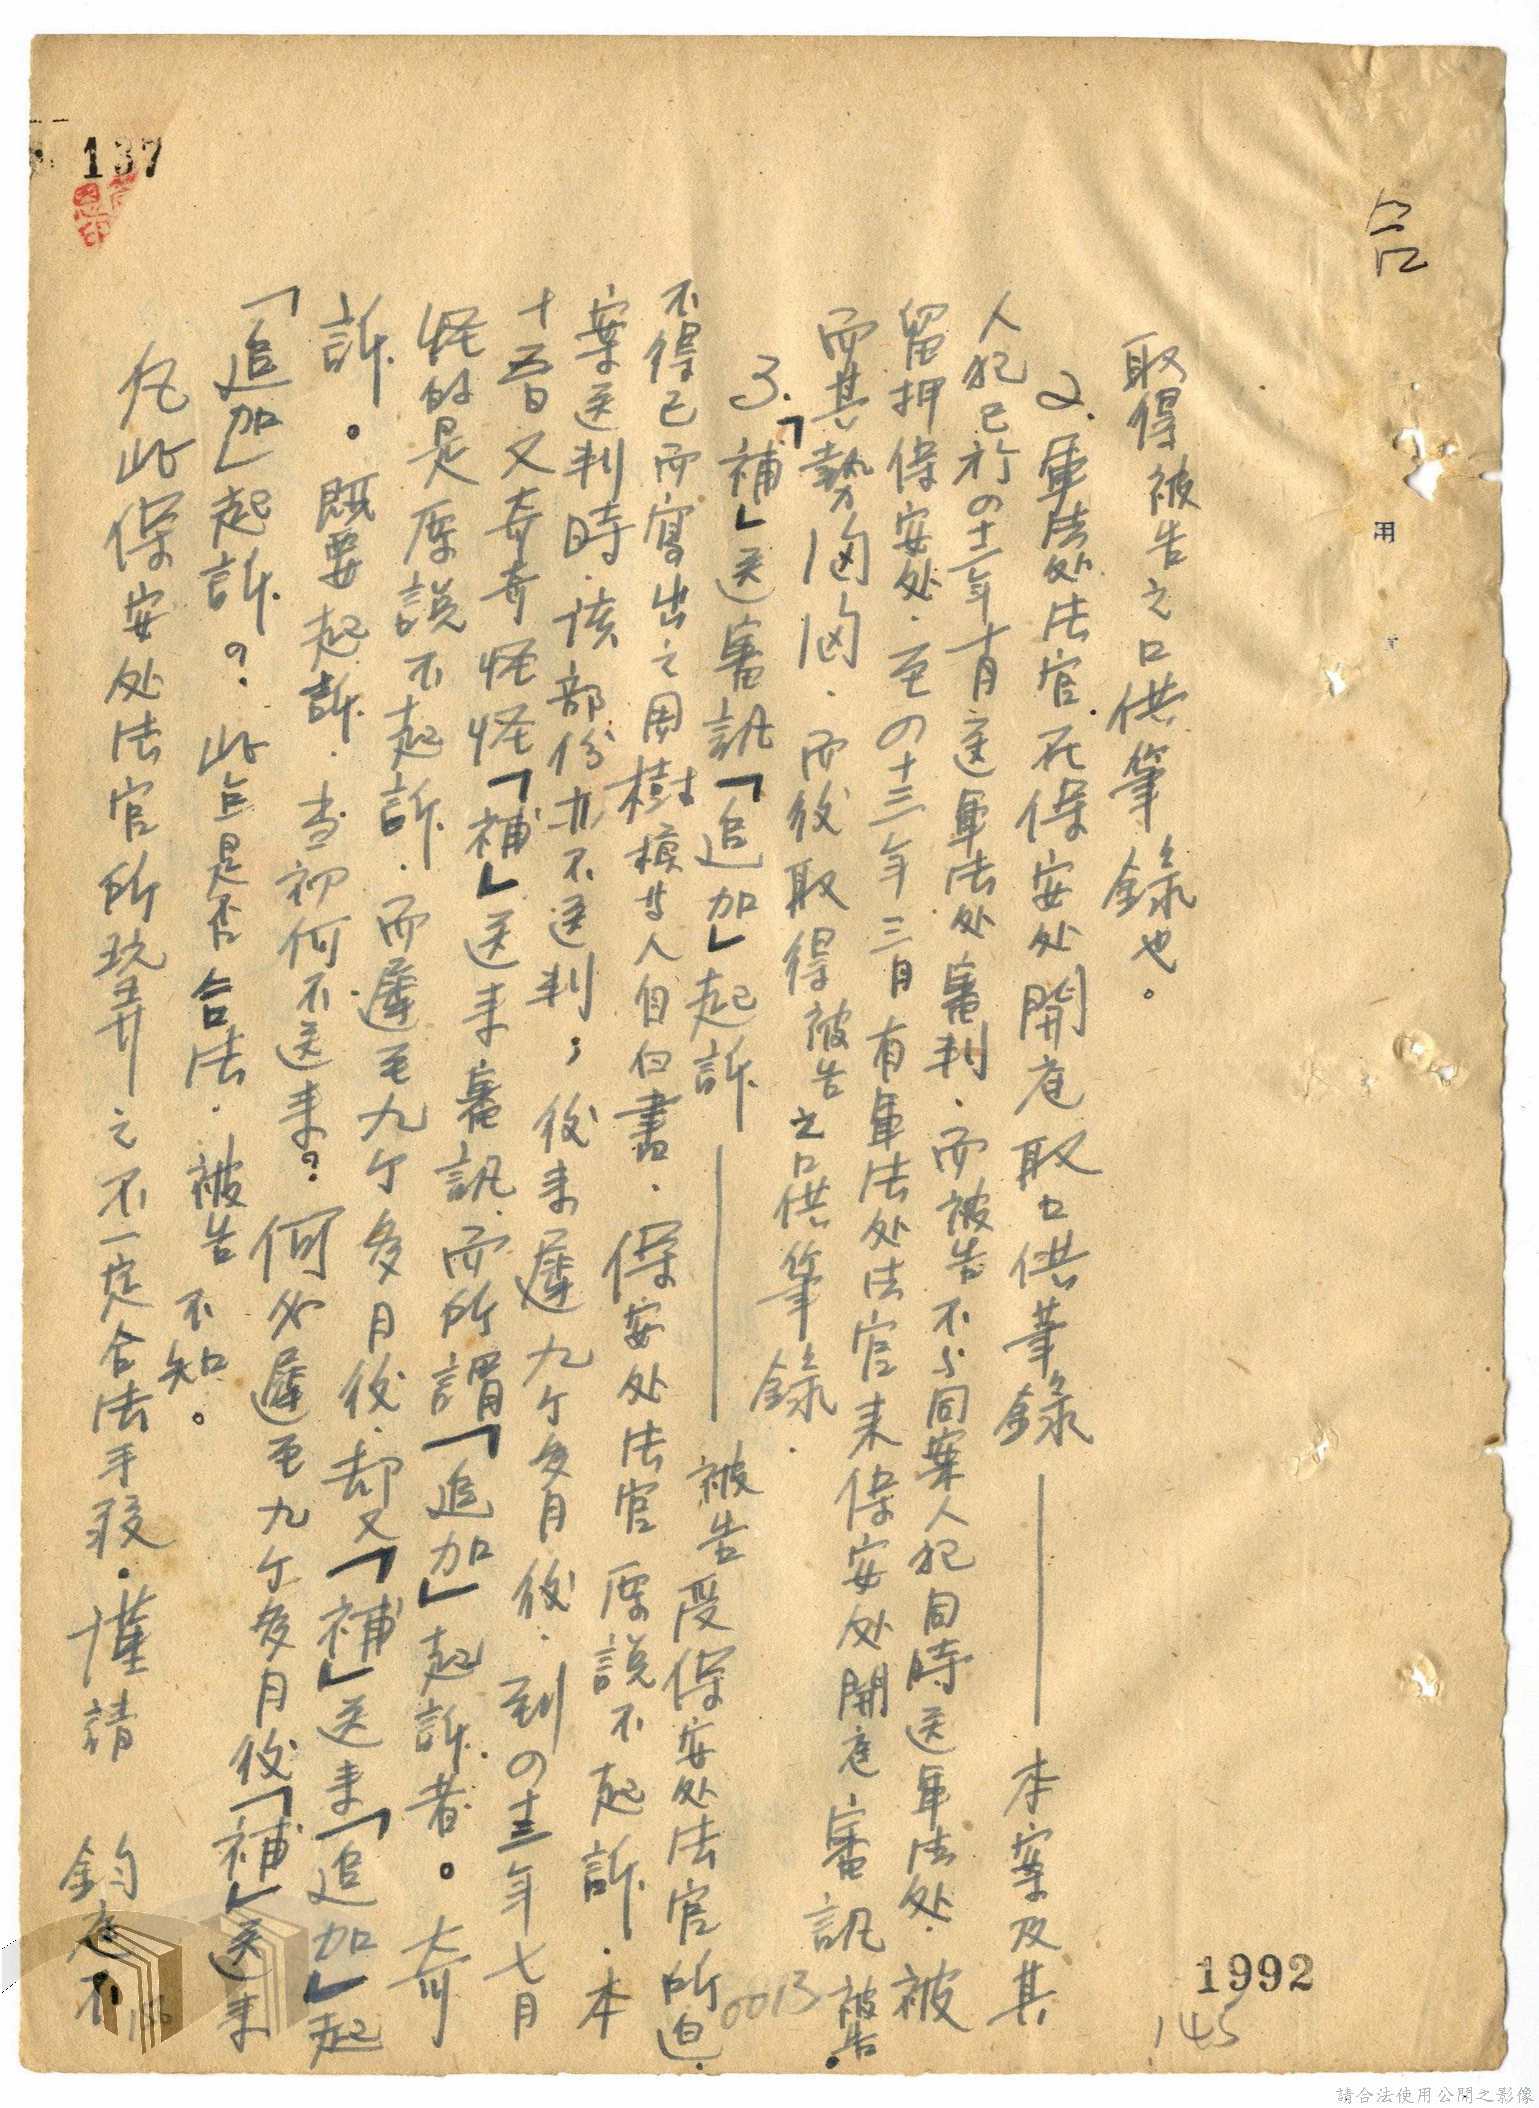 137
合
用
取得被告之口供筆錄也。
2.軍法处法官.在保安处開庭取口供筆錄——本案及其
人犯已於四十二年十月送軍法处審判.而被告不与同案人犯同時送軍法处.被
留押保安处.至四十三年三月有軍法处法官来保安处開庭審訊被告.
而其勢洶洶.而後取得被告之口供筆錄.
3.「補」送審訊「追加」起訴——被告受保安处法官所迫.
不得已而寫出之周樹模等人自白書.保安处法官原說不起訴.本
案送判時.該部份亦不送判;後来遲九个多月後.到四十三年七月
十五日又奇奇怪怪「補」送来審訊.而所謂「追加」起訴者。奇
怪的是原說不起訴.而遲至九个多月後.却又「補」送来「追加」起
訴。既要起訴.当初何不送来?何必遲至九个多月後「補」送来
「追加」起訴?此点是否合法.被告不知。
凡此保安处法官所玩弄之不一定合法手段.謹請 鈞庭不
0013
1992
145
請合法使用公開之影像